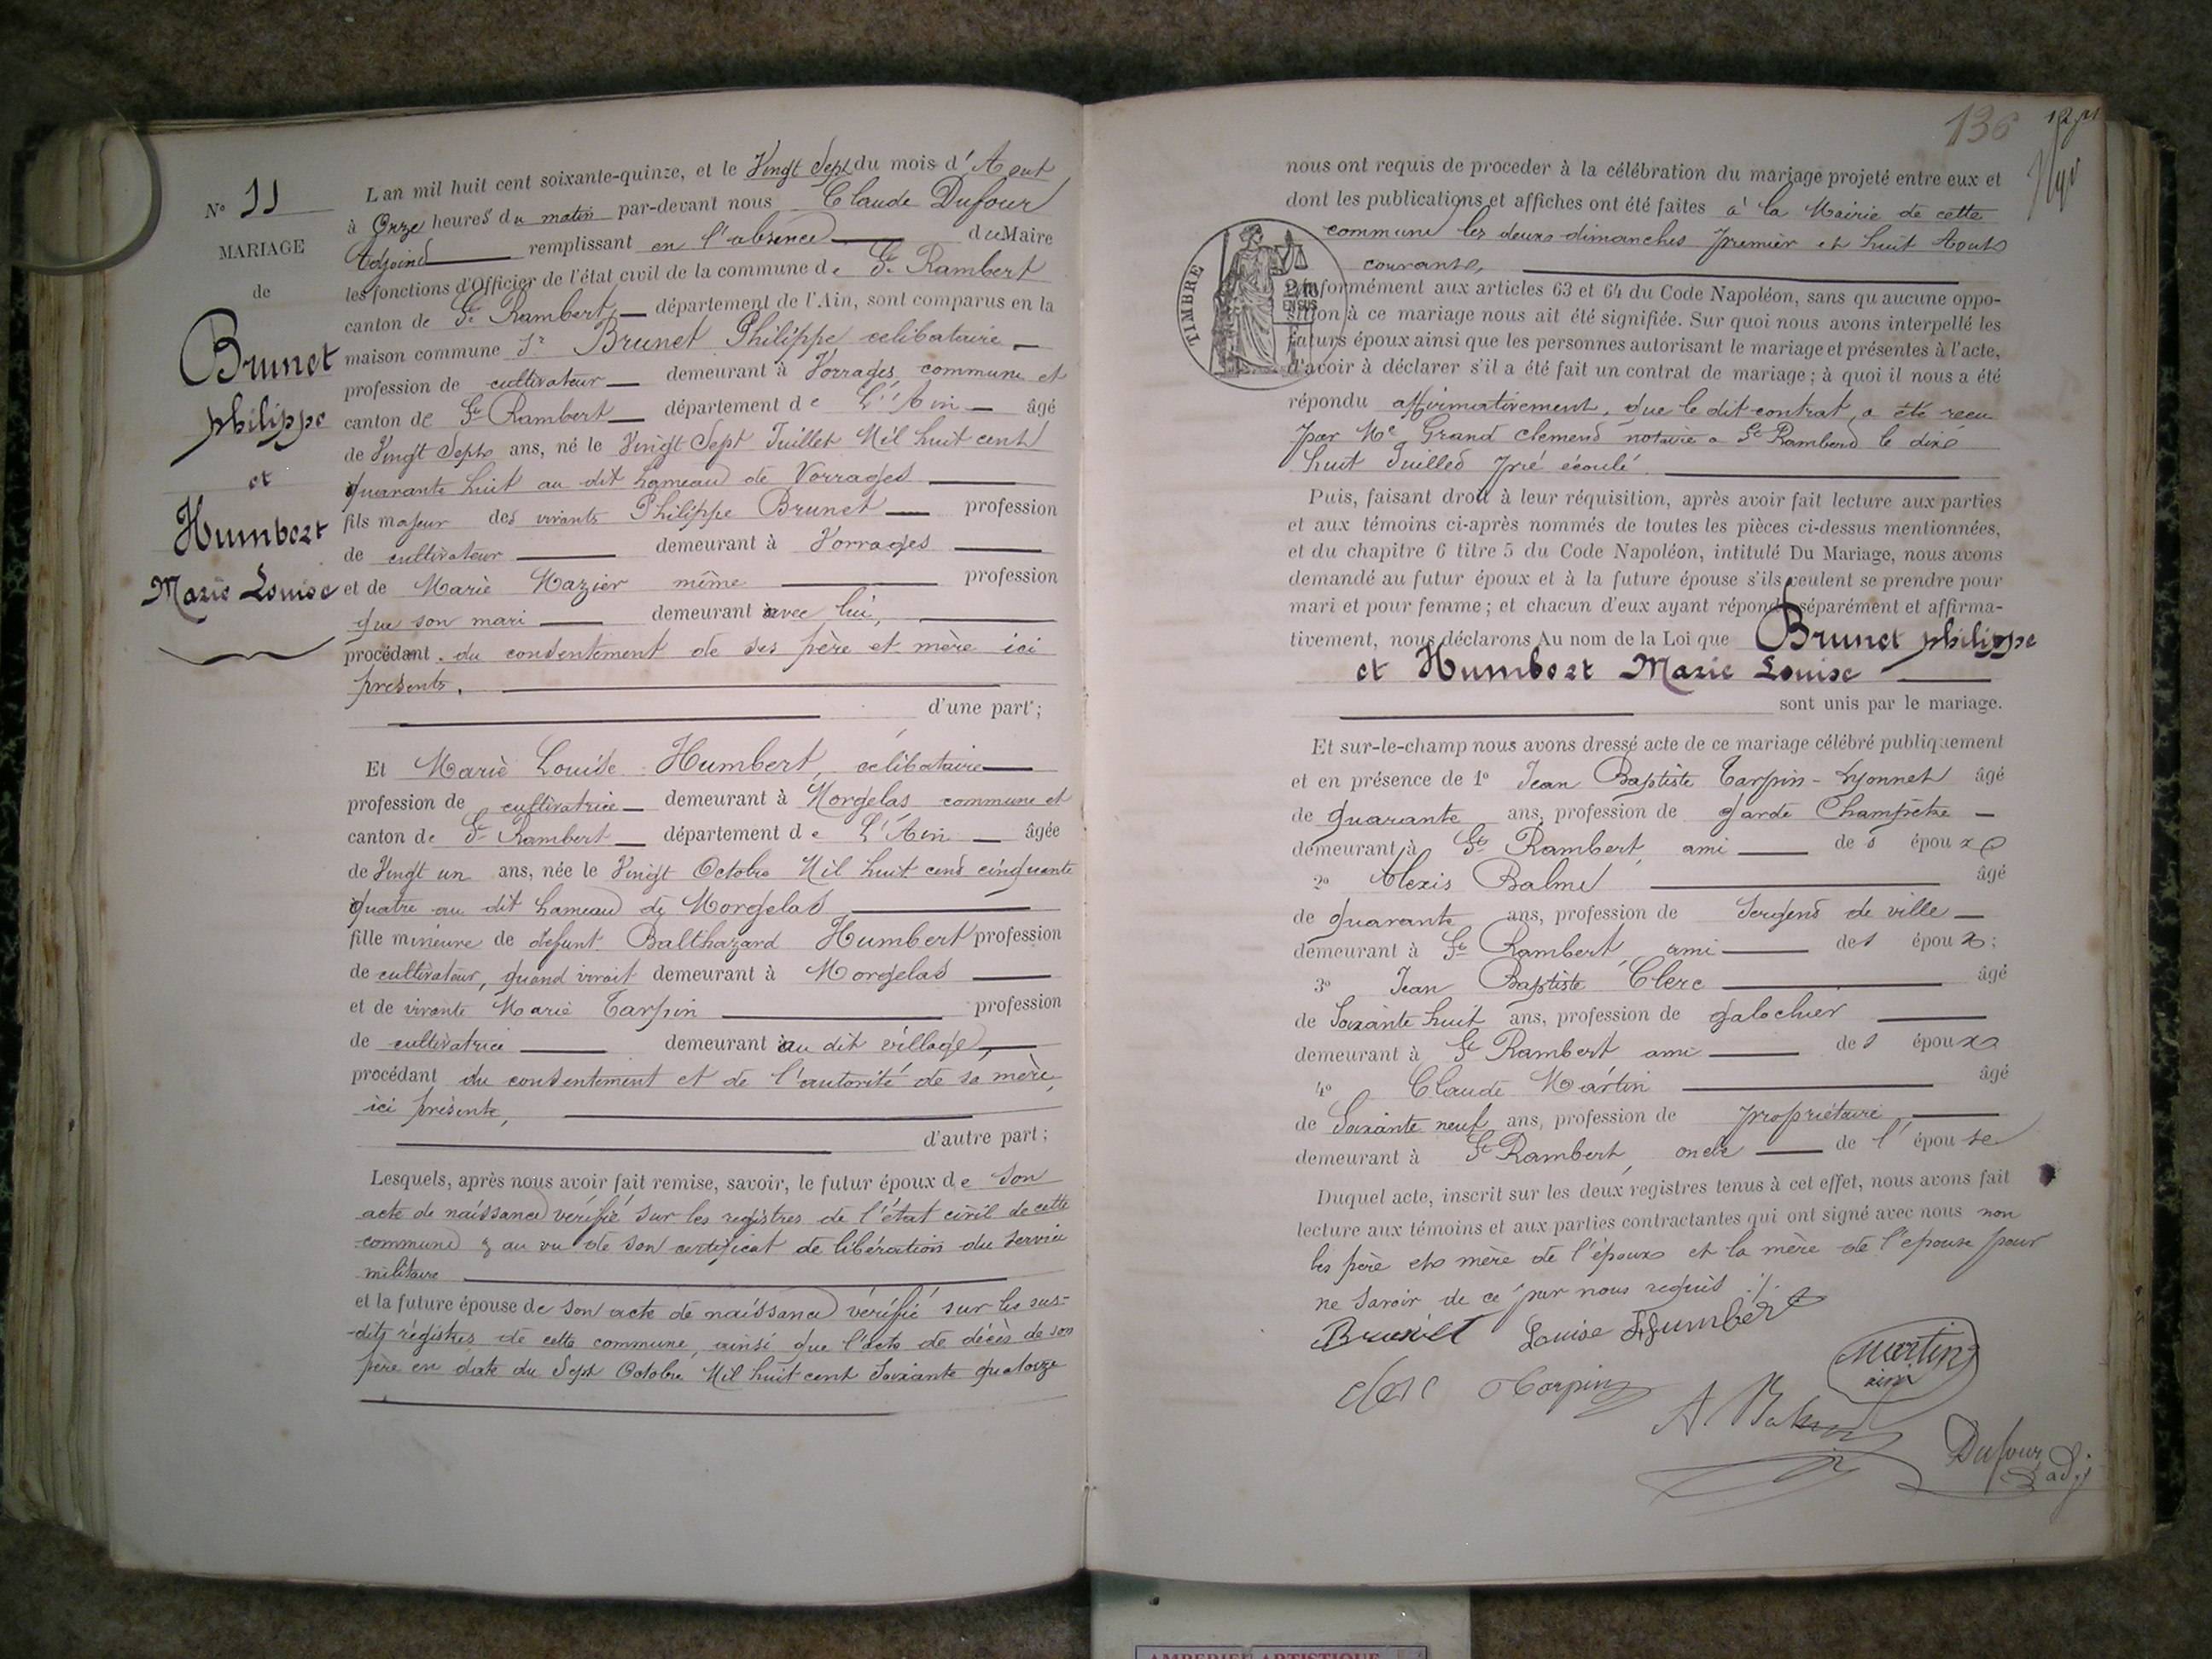 N° 11
MARIAGE
de
Brunet
philippe
et
Humbert
Marie Louise
L'an mil huit cent soixante-quinze, et le Vingt Sept du mois d'Aout
à Onze heures du matin par-devant nous Claude Dufour
Adjoint remplissant en l'absence du Maire
les fonctions d'Officier de l'état civil de la commune de St Rambert
canton de St Rambert département de l'Ain, sont comparus en la
maison commune Sr Brunet Philippe celibataire
profession de cultivateur demeurant à Vorrages commune et
canton de St Rambert département de L'Ain âgé
de Vingt Sept ans, né le Vingt Sept Juillet Mil huit cent
quarante huit au dit hameau de Vorrages
fils majeur des vivants Philippe Brunet profession
de cultivateur demeurant à Vorrages
et de Marie Mazier même profession
que son mari demeurant avec lui,
procédant du consentement de ses père et mère ici
présents.
d'une part;
Et Marie Louise Humbert, celibataire
profession de cultivatrice demeurant à Morgelas commune et
canton de St Rambert département de L'Ain âgée
de Vingt un ans, née le Vingt Octobre Mil huit cent cinquante
quatre au dit hameau de Morgelas
fille mineure de defunt Balthazard Humbert profession
de cultivateur, quand vivait demeurant à Morgelas
et de vivante Marie Tarpin profession
de cultivatrice demeurant au dit village,
procédant du consentement et de l'autorité de sa mère,
ici présente,
d'autre part;
Lesquels, après nous avoir fait remise, savoir, le futur époux de son
acte de naissance vérifié sur les registres de l'état civil de cette
commune & au vu de son certificat de libération du service
militaire
et la future épouse de son acte de naissance vérifié sur les sus-
dits régistres de cette commune, ainsi que l'acte de décès de son
père en date du Sept Octobre Mil huit cent soixante quatorze
136
nous ont requis de proceder à la célébration du mariage projeté entre eux et
dont les publications et affiches ont été faites à la Mairie de cette
commune les deux dimanches premier et huit Aout
courant,
TIMBRE
conformément aux articles 63 et 64 du Code Napoléon, sans qu'aucune oppo-
sition à ce mariage nous ait été signifiée. Sur quoi nous avons interpellé les
futurs époux ainsi que les personnes autorisant le mariage et présentes à l'acte,
d'avoir à déclarer s'il a été fait un contrat de mariage; à quoi il nous a été
répondu affirmativement, que le dit contrat a été recu
par Me Grand clement notaire a St Rambert le dix
huit Juillet écoulé
Puis, faisant droit à leur réquisition, après avoir fait lecture aux parties
et aux témoins ci-après nommés de toutes les pièces ci-dessus mentionnées,
et du chapitre 6 titre 5 du Code Napoléon, intitulé Du Mariage, nous avons
demandé au futur époux et à la future épouse s'ils veulent se prendre pour
mari et pour femme; et chacun d'eux ayant répondu séparément et affirma-
tivement, nous déclarons Au nom de la Loi que Brunet philippe
et Humbert Marie Louise
sont unis par le mariage.
Et sur-le-champ nous avons dressé acte de ce mariage célébré publiquement
et en présence de 1° Jean Baptiste Tarpin-Lyonnet âgé
de quarante ans, profession de garde Champêtre
demeurant à St Rambert, ami des époux
2° Alexis Balme âgé
de quarante ans, profession de Sergent de ville
demeurant à St Rambert, ami des époux;
3° Jean Baptiste Clerc âgé
de Soixante huit ans, profession de galochier
demeurant à St Rambert ami des époux
4° Claude Martin âgé
de Soixante neuf ans, profession de propriétaire,
demeurant à St Rambert, oncle de l'épouse
Duquel acte, inscrit sur les deux registres tenus à cet effet, nous avons fait
lecture aux témoins et aux parties contractantes qui ont signé avec nous non
les père et mère de l'époux et la mère de l'épouse pour
ne savoir de ce par nous requis ./.
Brunet Louise Humbert
Martin
ainé
Clerc Tarpin
A Balme
Dufour
adj.
AMBERIEU ARTISTIQUE